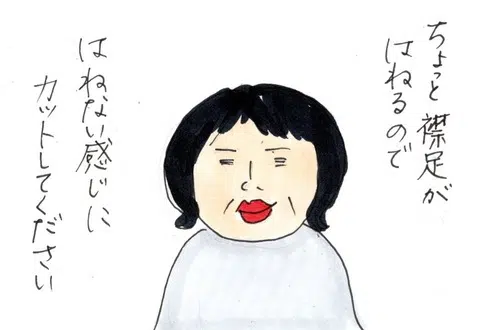 ちょっと襟足が
はねるので
はねない感じに
カットしてください